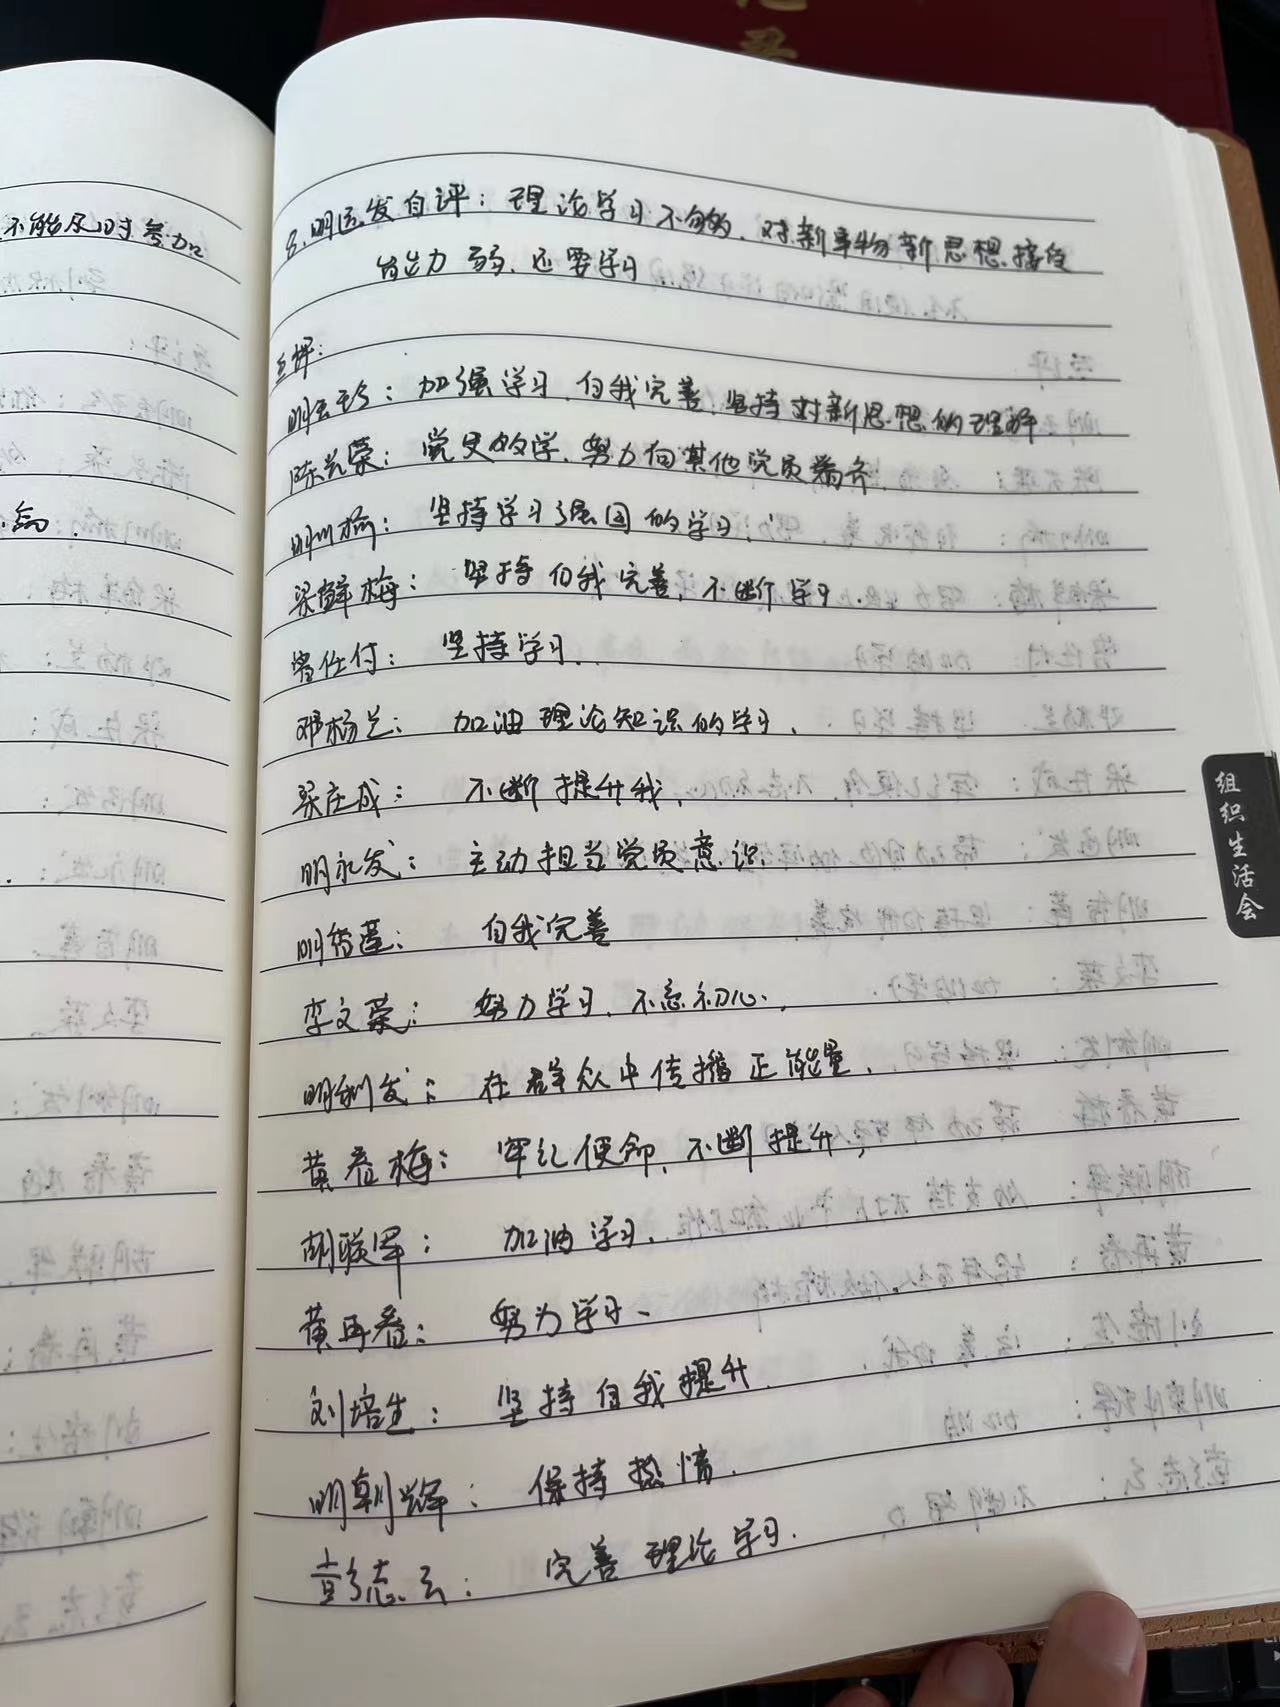 不能及时参加
8.明远发自评：理论学习不够，对新事物新思想接受
的能力弱，还要学习
互评：
明云珍：加强学习，自我完善，坚持对新思想的理解
陈兰荣：党史的学，努力向其他党员看齐
明川桥：坚持学习强国的学习
梁群梅：坚持自我完善，不断学习
曾仕付：坚持学习.
邓杨兰：加油理论知识的学习.
梁庄成：不断提升我，
明永发：主动担当党员意识
明秀莲：自我完善
李文荣：努力学习，不忘初心，
明利发：在群众中传播正能量，
黄春梅：牢记使命，不断提升，
胡联军：加油学习，
黄再春：努力学习、
刘培生：坚持自我提升
明朝辉：保持热情.
志云：完善理论学习.
组织生活会